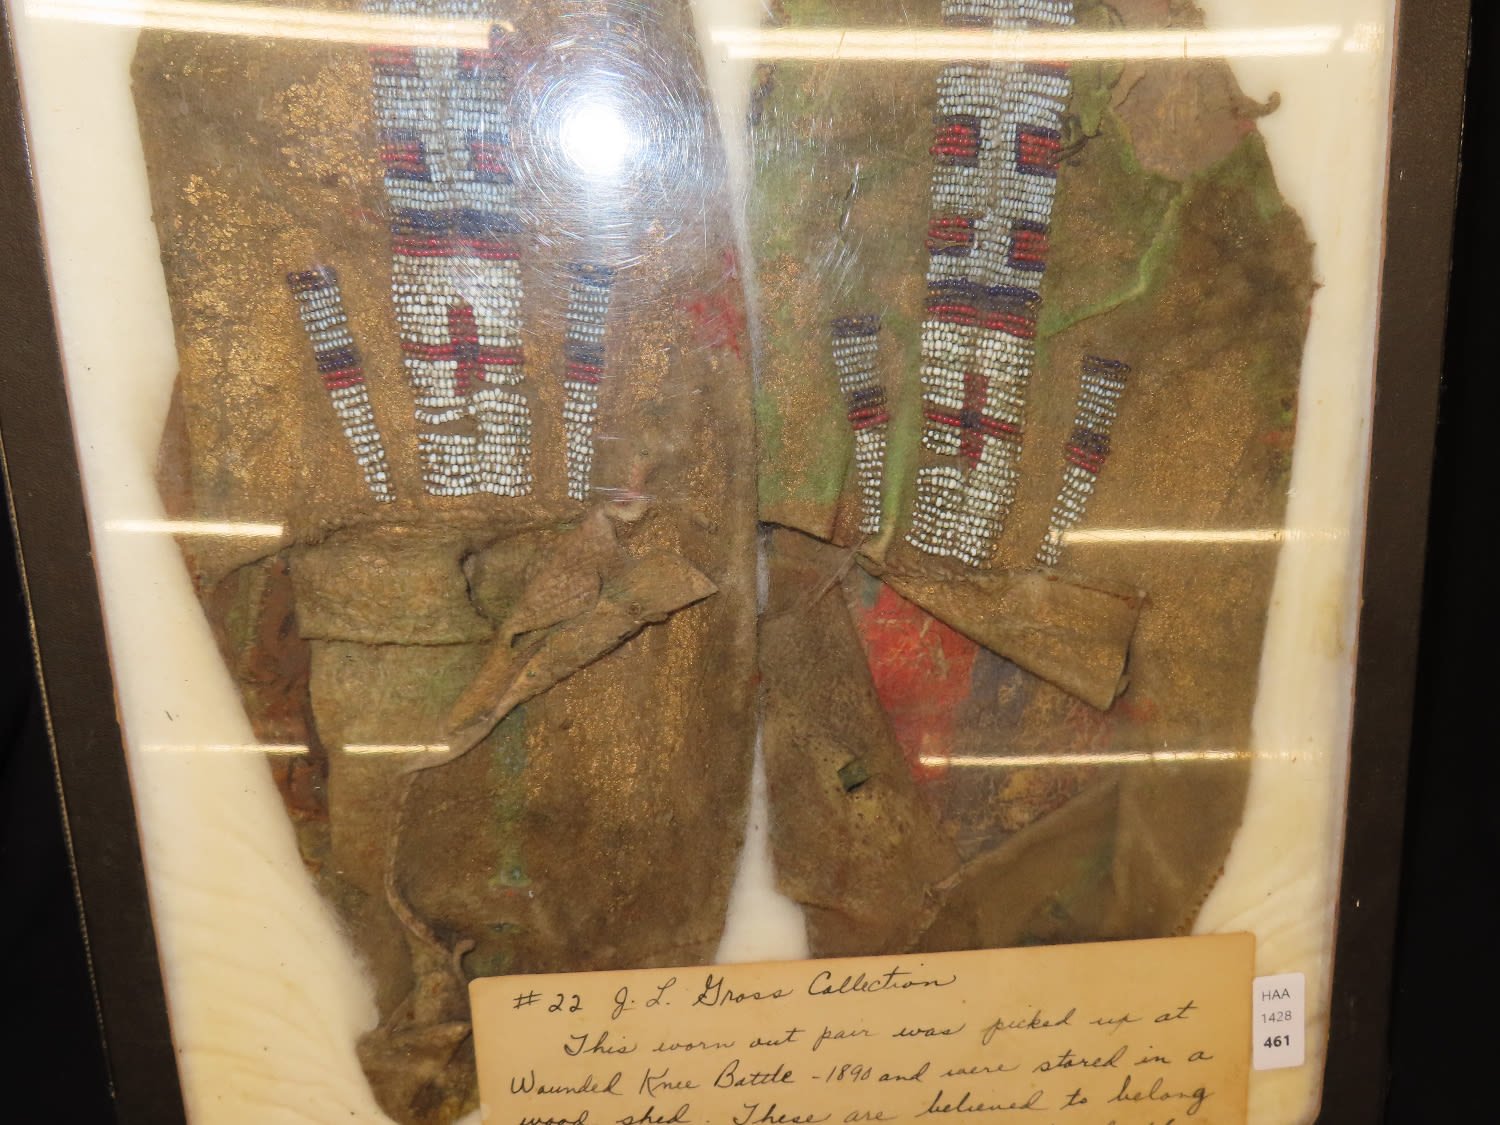 #22 J. L. Gross Collection
This worn out pair was picked up at
Wounded Knee Battle - 1890 and were stored in a
wood shed. These are believed to belong
HAA
1428
461